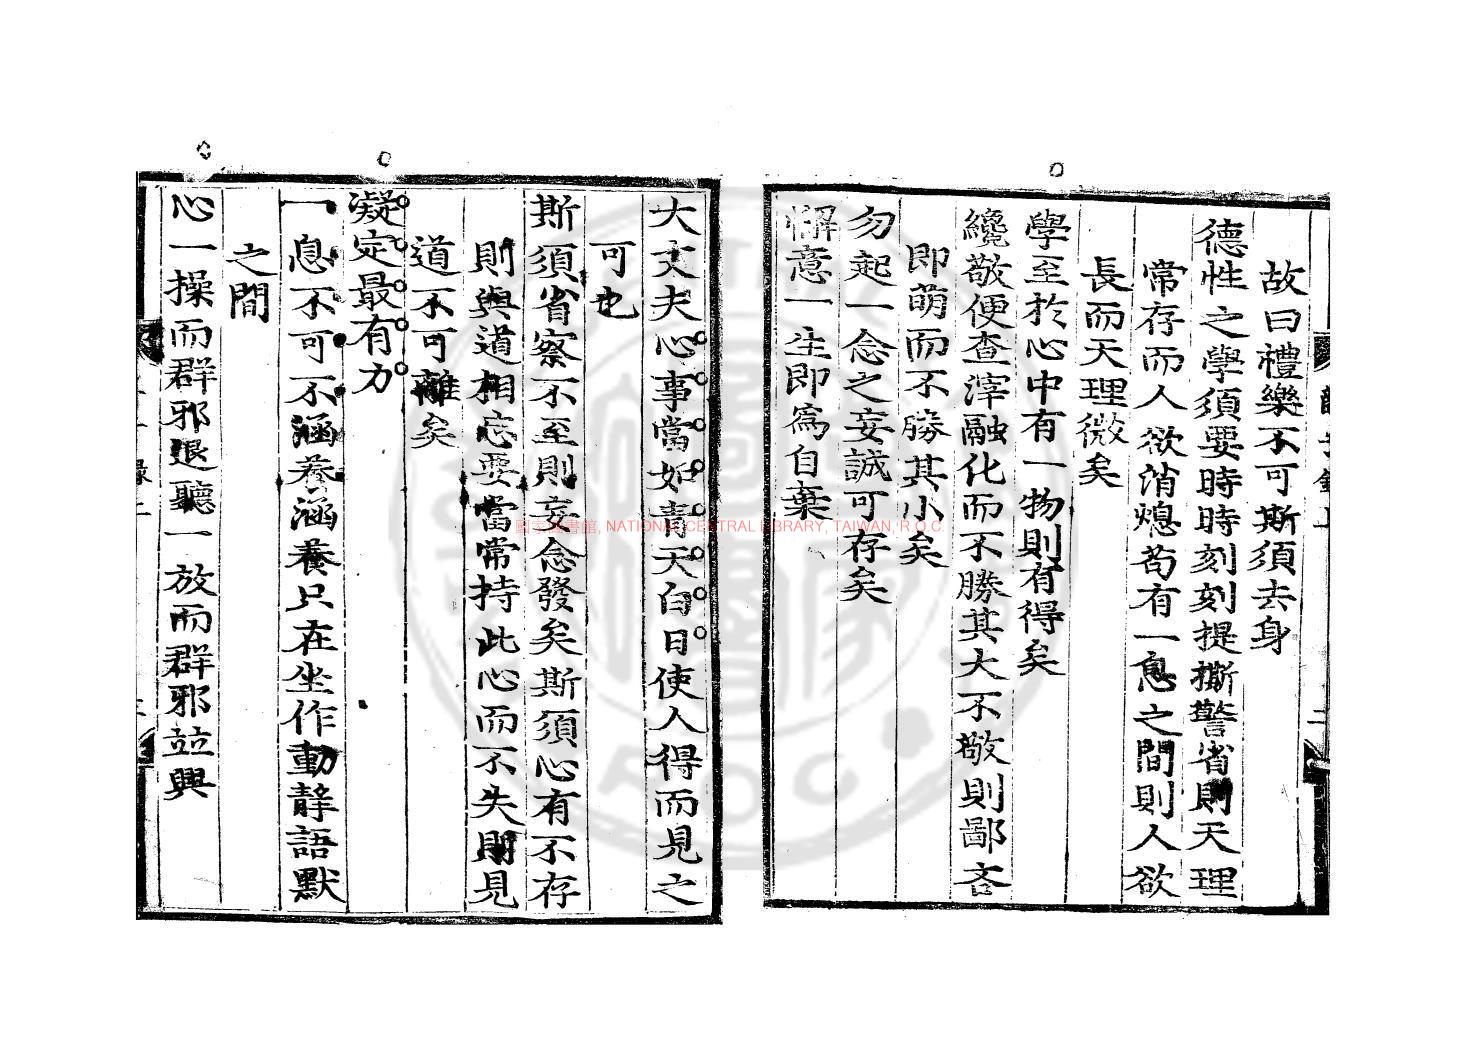 故曰禮樂不可斯須去身
德性之學須要時時刻刻提撕警省則天理
常存而人欲消熄苟有一息之間則人欲
長而天理微矣
學至於心中有一物則有得矣
纔敬便查滓融化而不勝其大不敬則鄙吝
即萌而不勝其小矣
勿起一念之妄誠可存矣
懈意一生即爲自棄
大丈夫心事當如青天白日使人得而見之
可也
斯須省察不至則妄念發矣斯須心有不存
則與道相忘要當常持此心而不失則見
道不可離矣
凝定最有力
一息不可不涵養涵養只在坐作動靜語默
之間
心一操而群邪退聽一放而群邪竝興
國家圖書館, NATIONAL CENTRAL LIBRARY, TAIWAN, R.O.C.